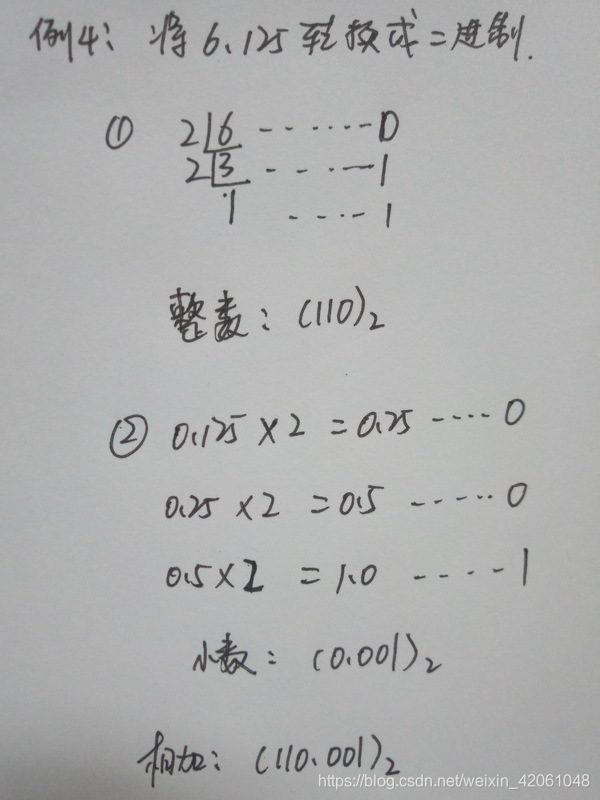 例4：将6.125转换成二进制.
① 2 6 -------0
2 3 - - ---1
1 ----1
整数：(110)₂
② 0.125×2=0.25 ----0
0.25×2 =0.5 -----0
0.5×2 =1.0 ----1
小数：(0.001)₂
相加：(110.001)₂
https://blog.csdn.net/weixin_42061048